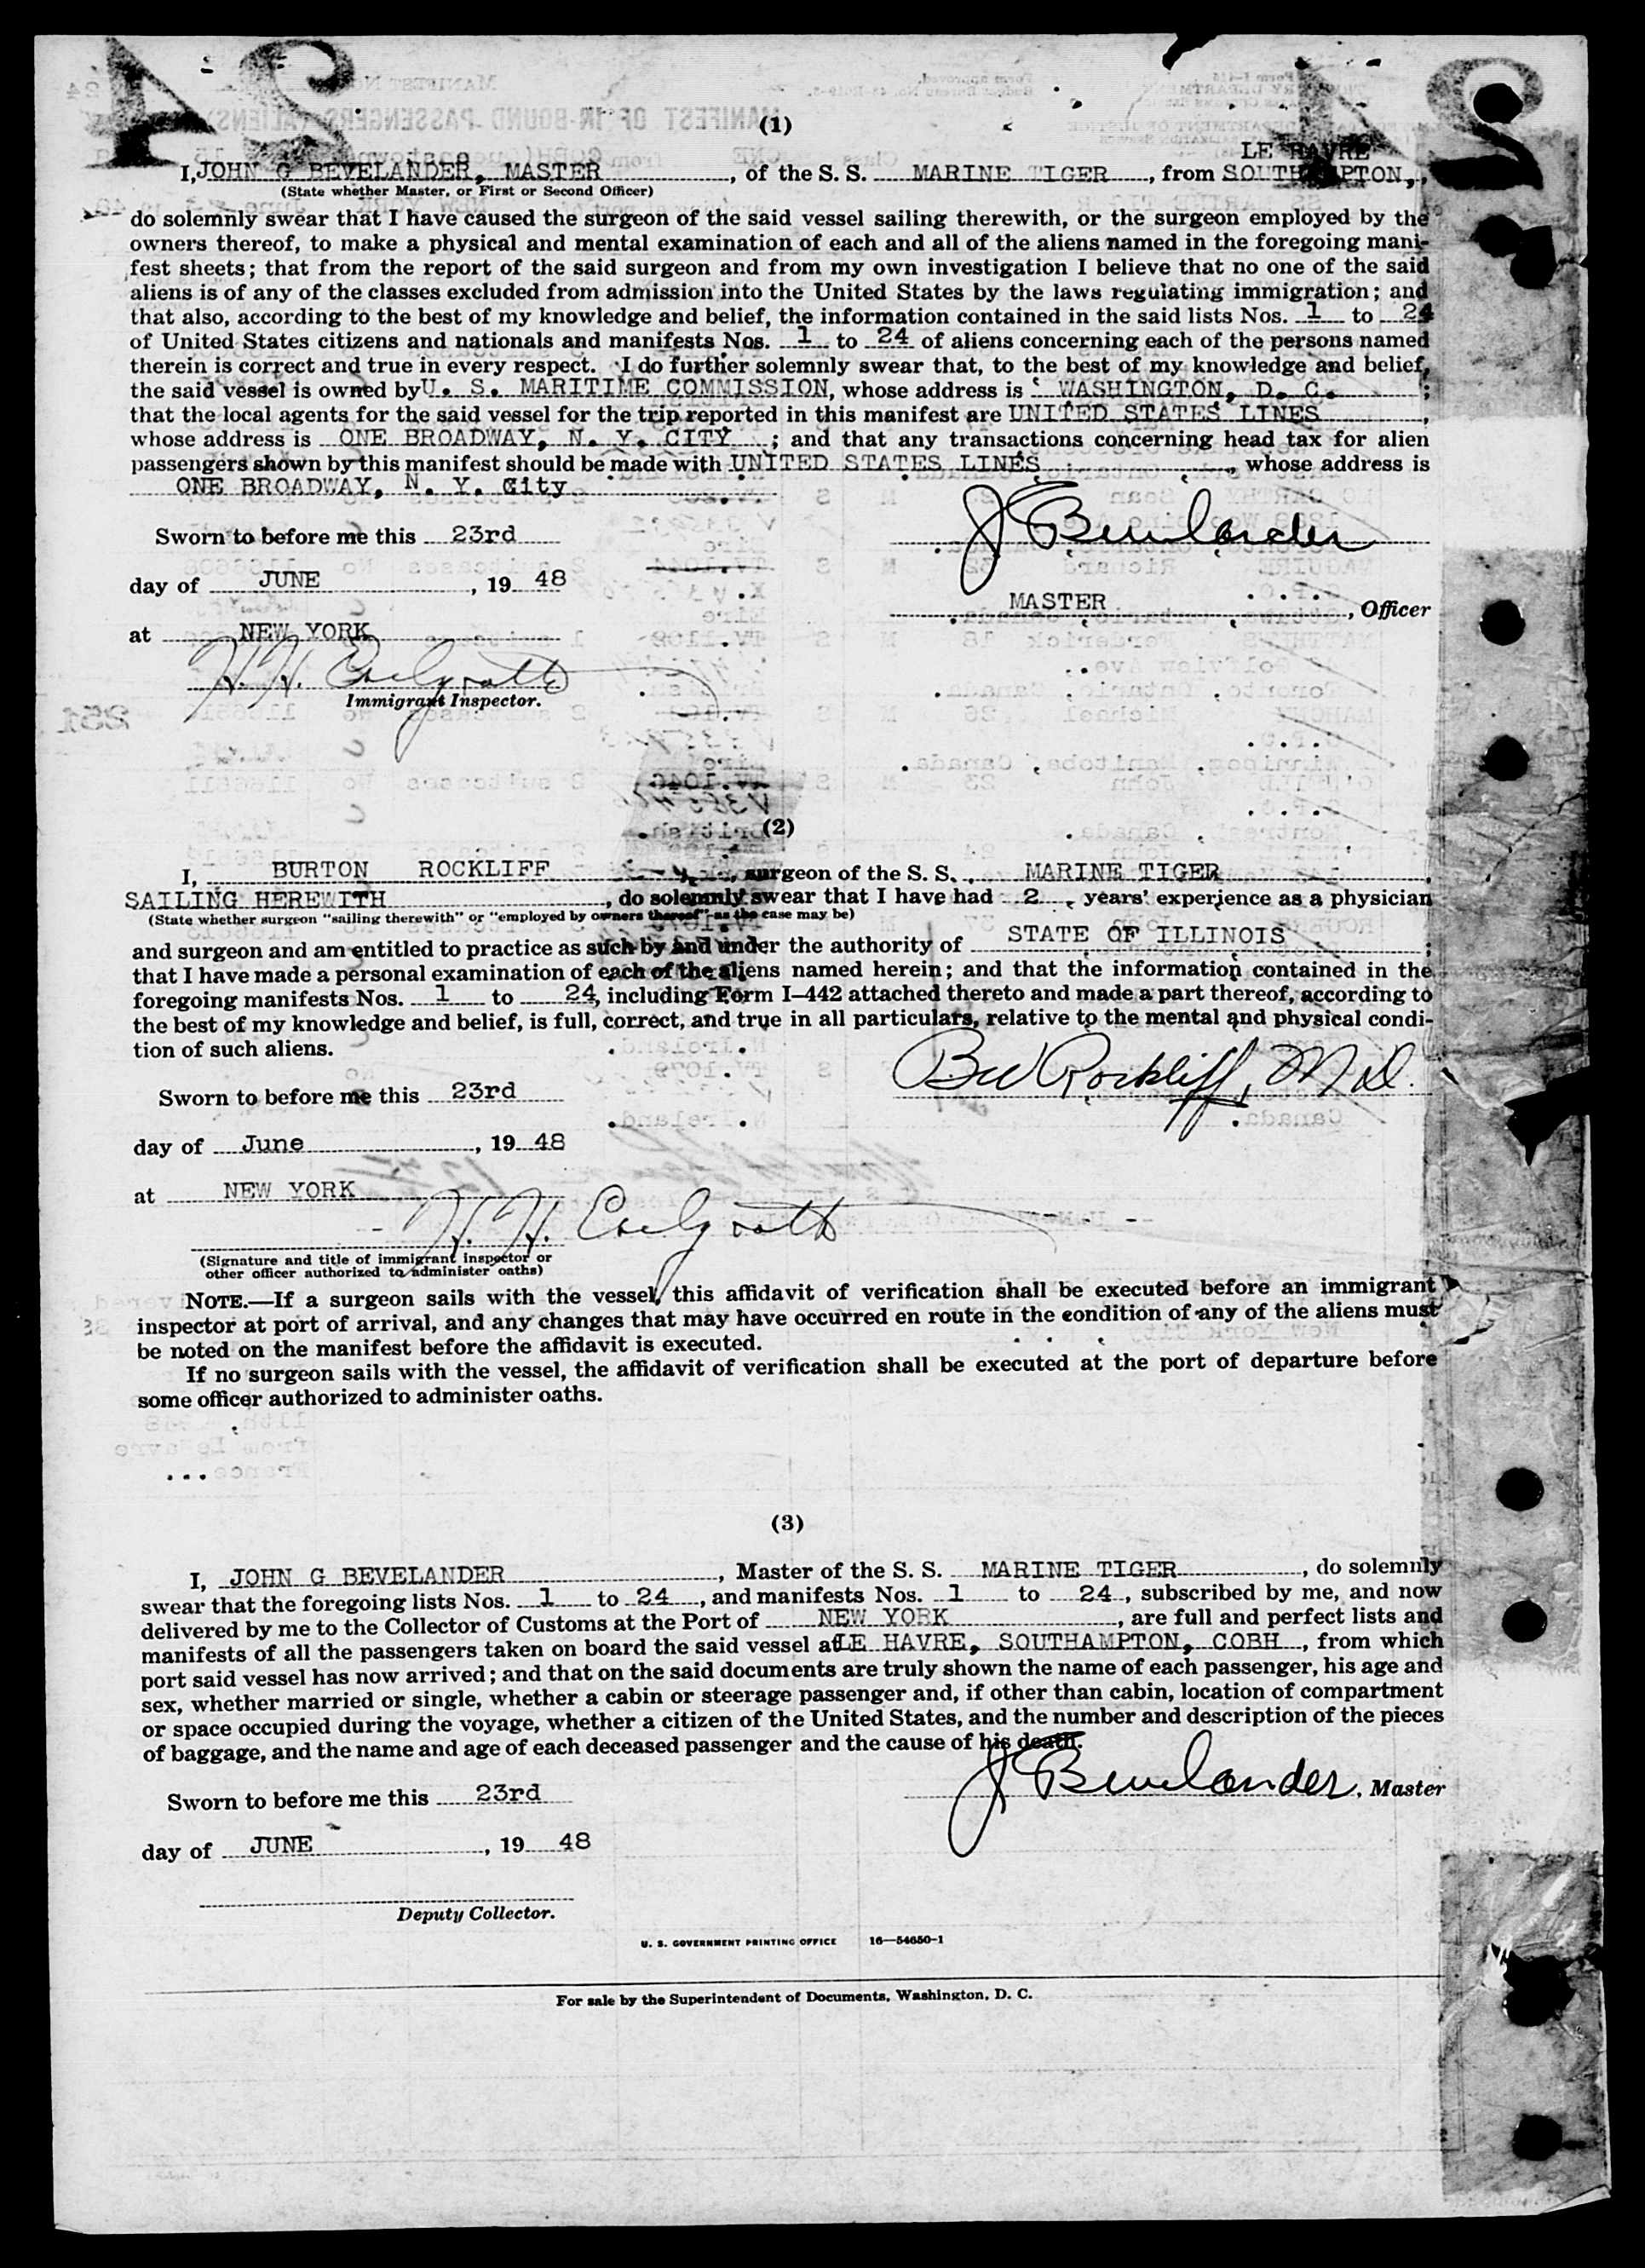 24
(1)
LE HAVRE
I, JOHN G BEVELANDER, MASTER, of the S. S. MARINE TIGER, from SOUTHAMPTON,,
(State whether Master, or First or Second Officer)
do solemnly swear that I have caused the surgeon of the said vessel sailing therewith, or the surgeon employed by the
owners thereof, to make a physical and mental examination of each and all of the aliens named in the foregoing mani-
fest sheets; that from the report of the said surgeon and from my own investigation I believe that no one of the said
aliens is of any of the classes excluded from admission into the United States by the laws regulating immigration; and
that also, according to the best of my knowledge and belief, the information contained in the said lists Nos. 1 to 24
of United States citizens and nationals and manifests Nos. 1 to 24 of aliens concerning each of the persons named
therein is correct and true in every respect. I do further solemnly swear that, to the best of my knowledge and belief,
the said vessel is owned by U. S. MARITIME COMMISSION, whose address is WASHINGTON, D. C. ;
that the local agents for the said vessel for the trip reported in this manifest are UNITED STATES LINES,
whose address is ONE BROADWAY, N. Y. CITY; and that any transactions concerning head tax for alien
passengers shown by this manifest should be made with UNITED STATES LINES, whose address is
ONE BROADWAY, N. Y. City
J Bevelander
Sworn to before me this 23rd
day of JUNE, 19 48
MASTER, Officer
at NEW YORK
H. H.
Immigrant Inspector.
(2)
I, BURTON ROCKLIFF, surgeon of the S. S. MARINE TIGER,
SAILING HEREWITH, do solemnly swear that I have had 2 years' experience as a physician
(State whether surgeon "sailing therewith" or "employed by owners thereof" as the case may be)
and surgeon and am entitled to practice as such by and under the authority of STATE OF ILLINOIS;
that I have made a personal examination of each of the aliens named herein; and that the information contained in the
foregoing manifests Nos. 1 to 24, including Form I-442 attached thereto and made a part thereof, according to
the best of my knowledge and belief, is full, correct, and true in all particulars, relative to the mental and physical condi-
tion of such aliens.
Rockliff, M.D.
Sworn to before me this 23rd
day of June, 19 48
at NEW YORK
H. H.
(Signature and title of immigrant inspector or
other officer authorized to administer oaths)
NOTE.—If a surgeon sails with the vessel, this affidavit of verification shall be executed before an immigrant
inspector at port of arrival, and any changes that may have occurred en route in the condition of any of the aliens must
be noted on the manifest before the affidavit is executed.
If no surgeon sails with the vessel, the affidavit of verification shall be executed at the port of departure before
some officer authorized to administer oaths.
(3)
I, JOHN G BEVELANDER, Master of the S. S. MARINE TIGER, do solemnly
swear that the foregoing lists Nos. 1 to 24, and manifests Nos. 1 to 24, subscribed by me, and now
delivered by me to the Collector of Customs at the Port of NEW YORK, are full and perfect lists and
manifests of all the passengers taken on board the said vessel at LE HAVRE, SOUTHAMPTON, COBH, from which
port said vessel has now arrived; and that on the said documents are truly shown the name of each passenger, his age and
sex, whether married or single, whether a cabin or steerage passenger and, if other than cabin, location of compartment
or space occupied during the voyage, whether a citizen of the United States, and the number and description of the pieces
of baggage, and the name and age of each deceased passenger and the cause of his death.
J Bevelander, Master
Sworn to before me this 23rd
day of JUNE, 19 48
Deputy Collector.
U. S. GOVERNMENT PRINTING OFFICE 16—54650-1
For sale by the Superintendent of Documents, Washington, D. C.